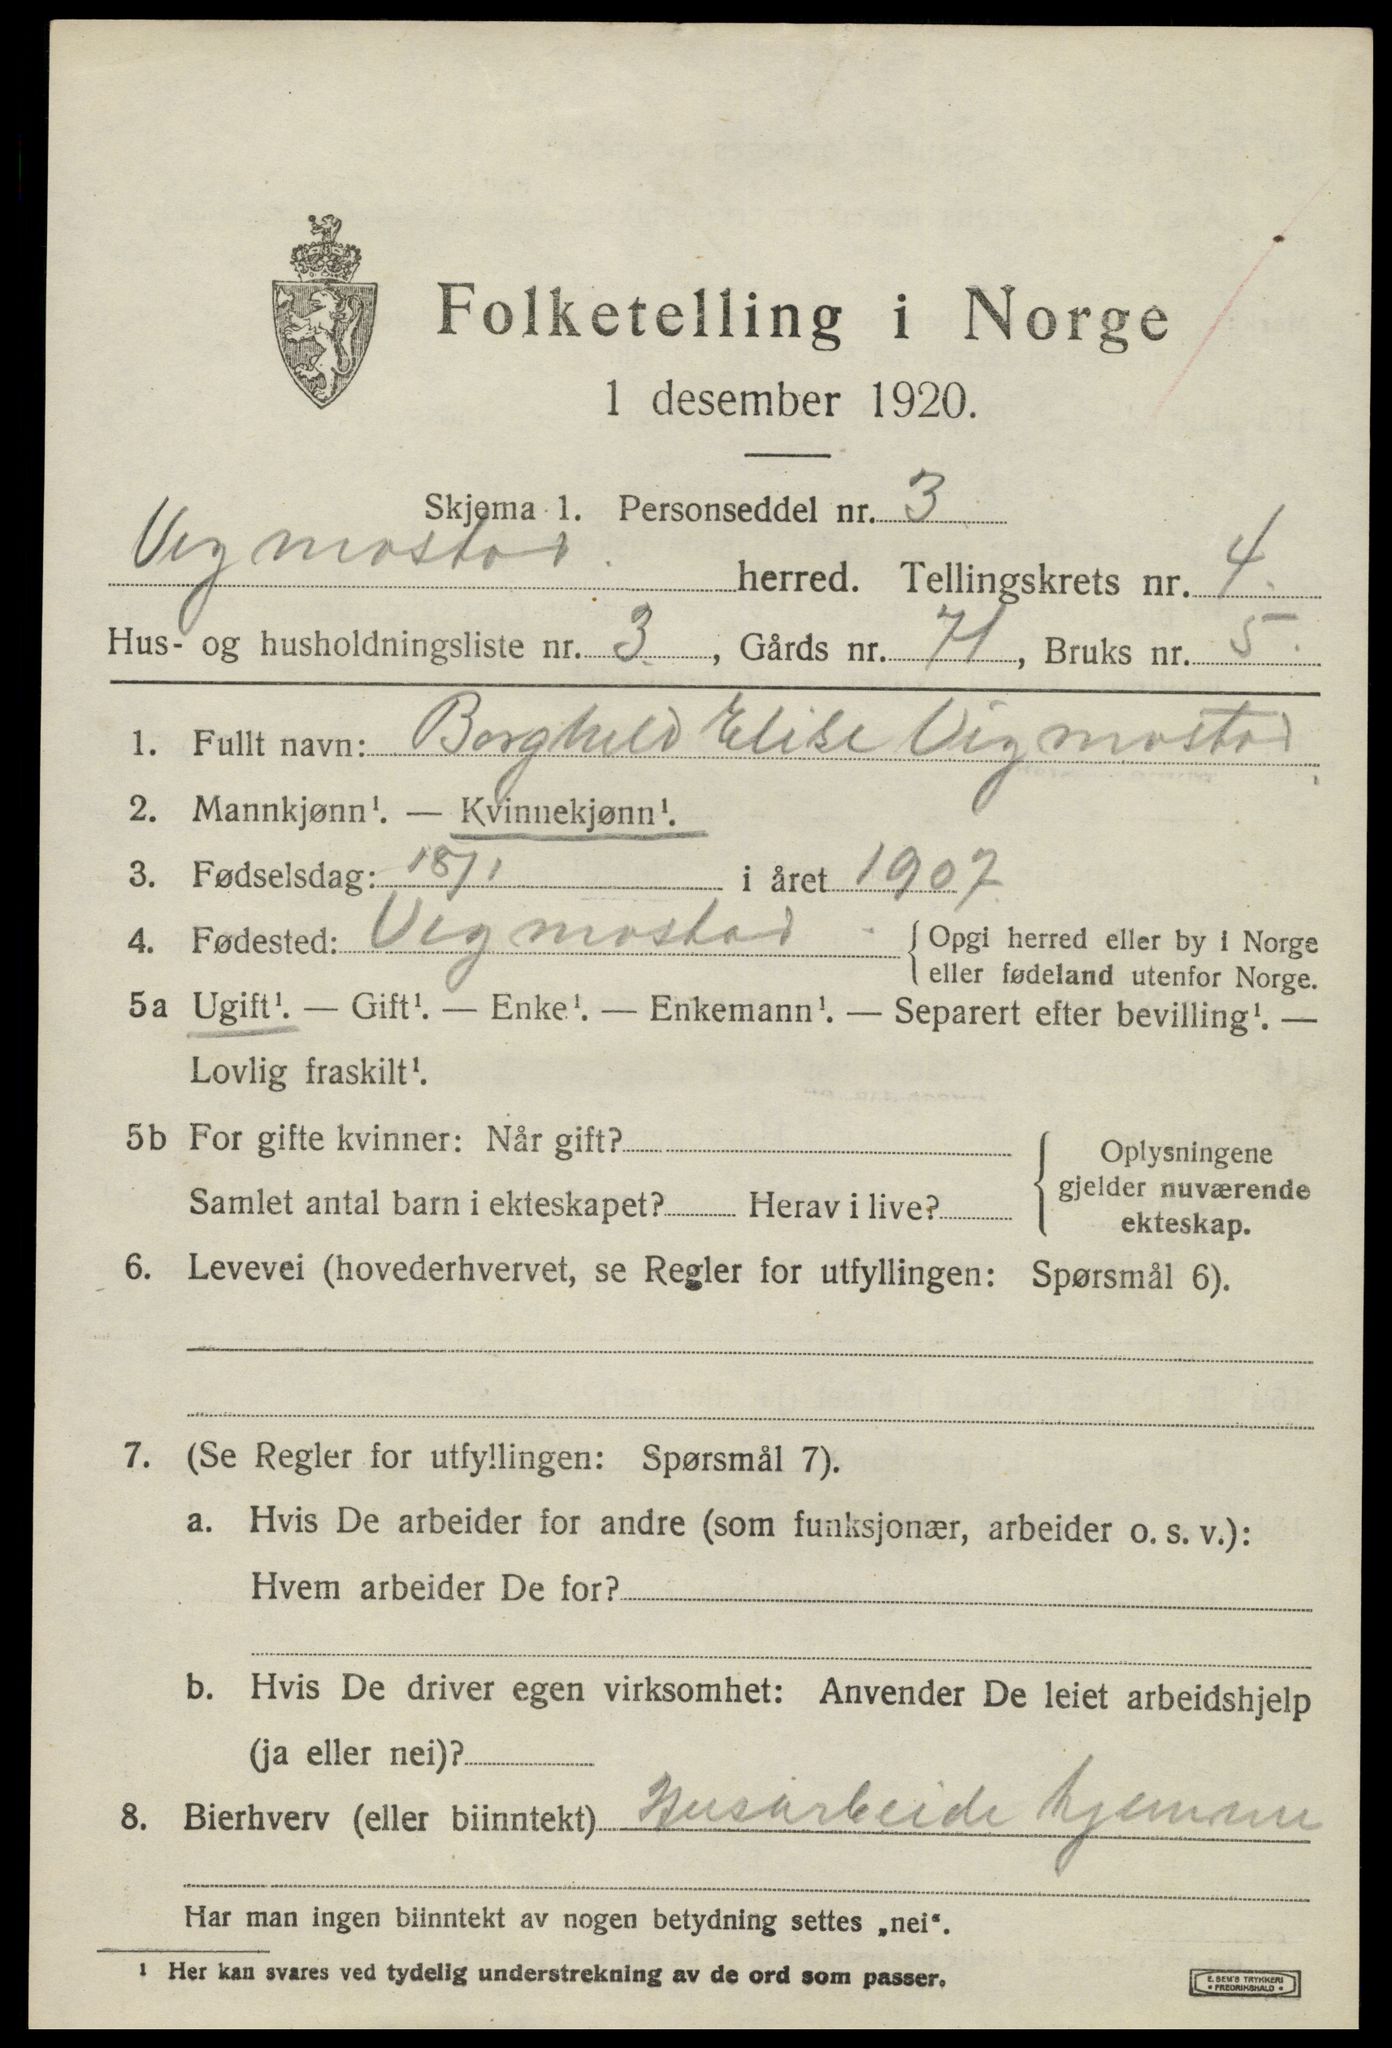 Folketelling i Norge
1 desember 1920.
Skjema 1. Personseddel nr. 3
Vigmostad herred. Tellingskrets nr. 4.
Hus- og husholdningsliste nr. 3, Gårds nr. 71, Bruks nr. 5.
1. Fullt navn: Borghild Elise Vigmostad
2. Mannkjønn¹. — Kvinnekjønn¹.
3. Fødselsdag: 18/1 i året 1907
4. Fødested: Vigmostad. { Opgi herred eller by i Norge
eller fødeland utenfor Norge.
5a Ugift¹. — Gift¹. — Enke¹. — Enkemann¹. — Separert efter bevilling¹. —
Lovlig fraskilt¹.
5b For gifte kvinner: Når gift?
Samlet antal barn i ekteskapet? Herav i live?
{ Oplysningene
gjelder nuværende
ekteskap.
6. Levevei (hovederhvervet, se Regler for utfyllingen: Spørsmål 6).
7. (Se Regler for utfyllingen: Spørsmål 7).
a. Hvis De arbeider for andre (som funksjonær, arbeider o. s. v.):
Hvem arbeider De for?
b. Hvis De driver egen virksomhet: Anvender De leiet arbeidshjelp
(ja eller nei)?
8. Bierhverv (eller biinntekt) Husarbeide hjemme
Har man ingen biinntekt av nogen betydning settes „nei“.
¹ Her kan svares ved tydelig understrekning av de ord som passer.
E. SEM'S TRYKKERI
• FREDRIKSHALD •